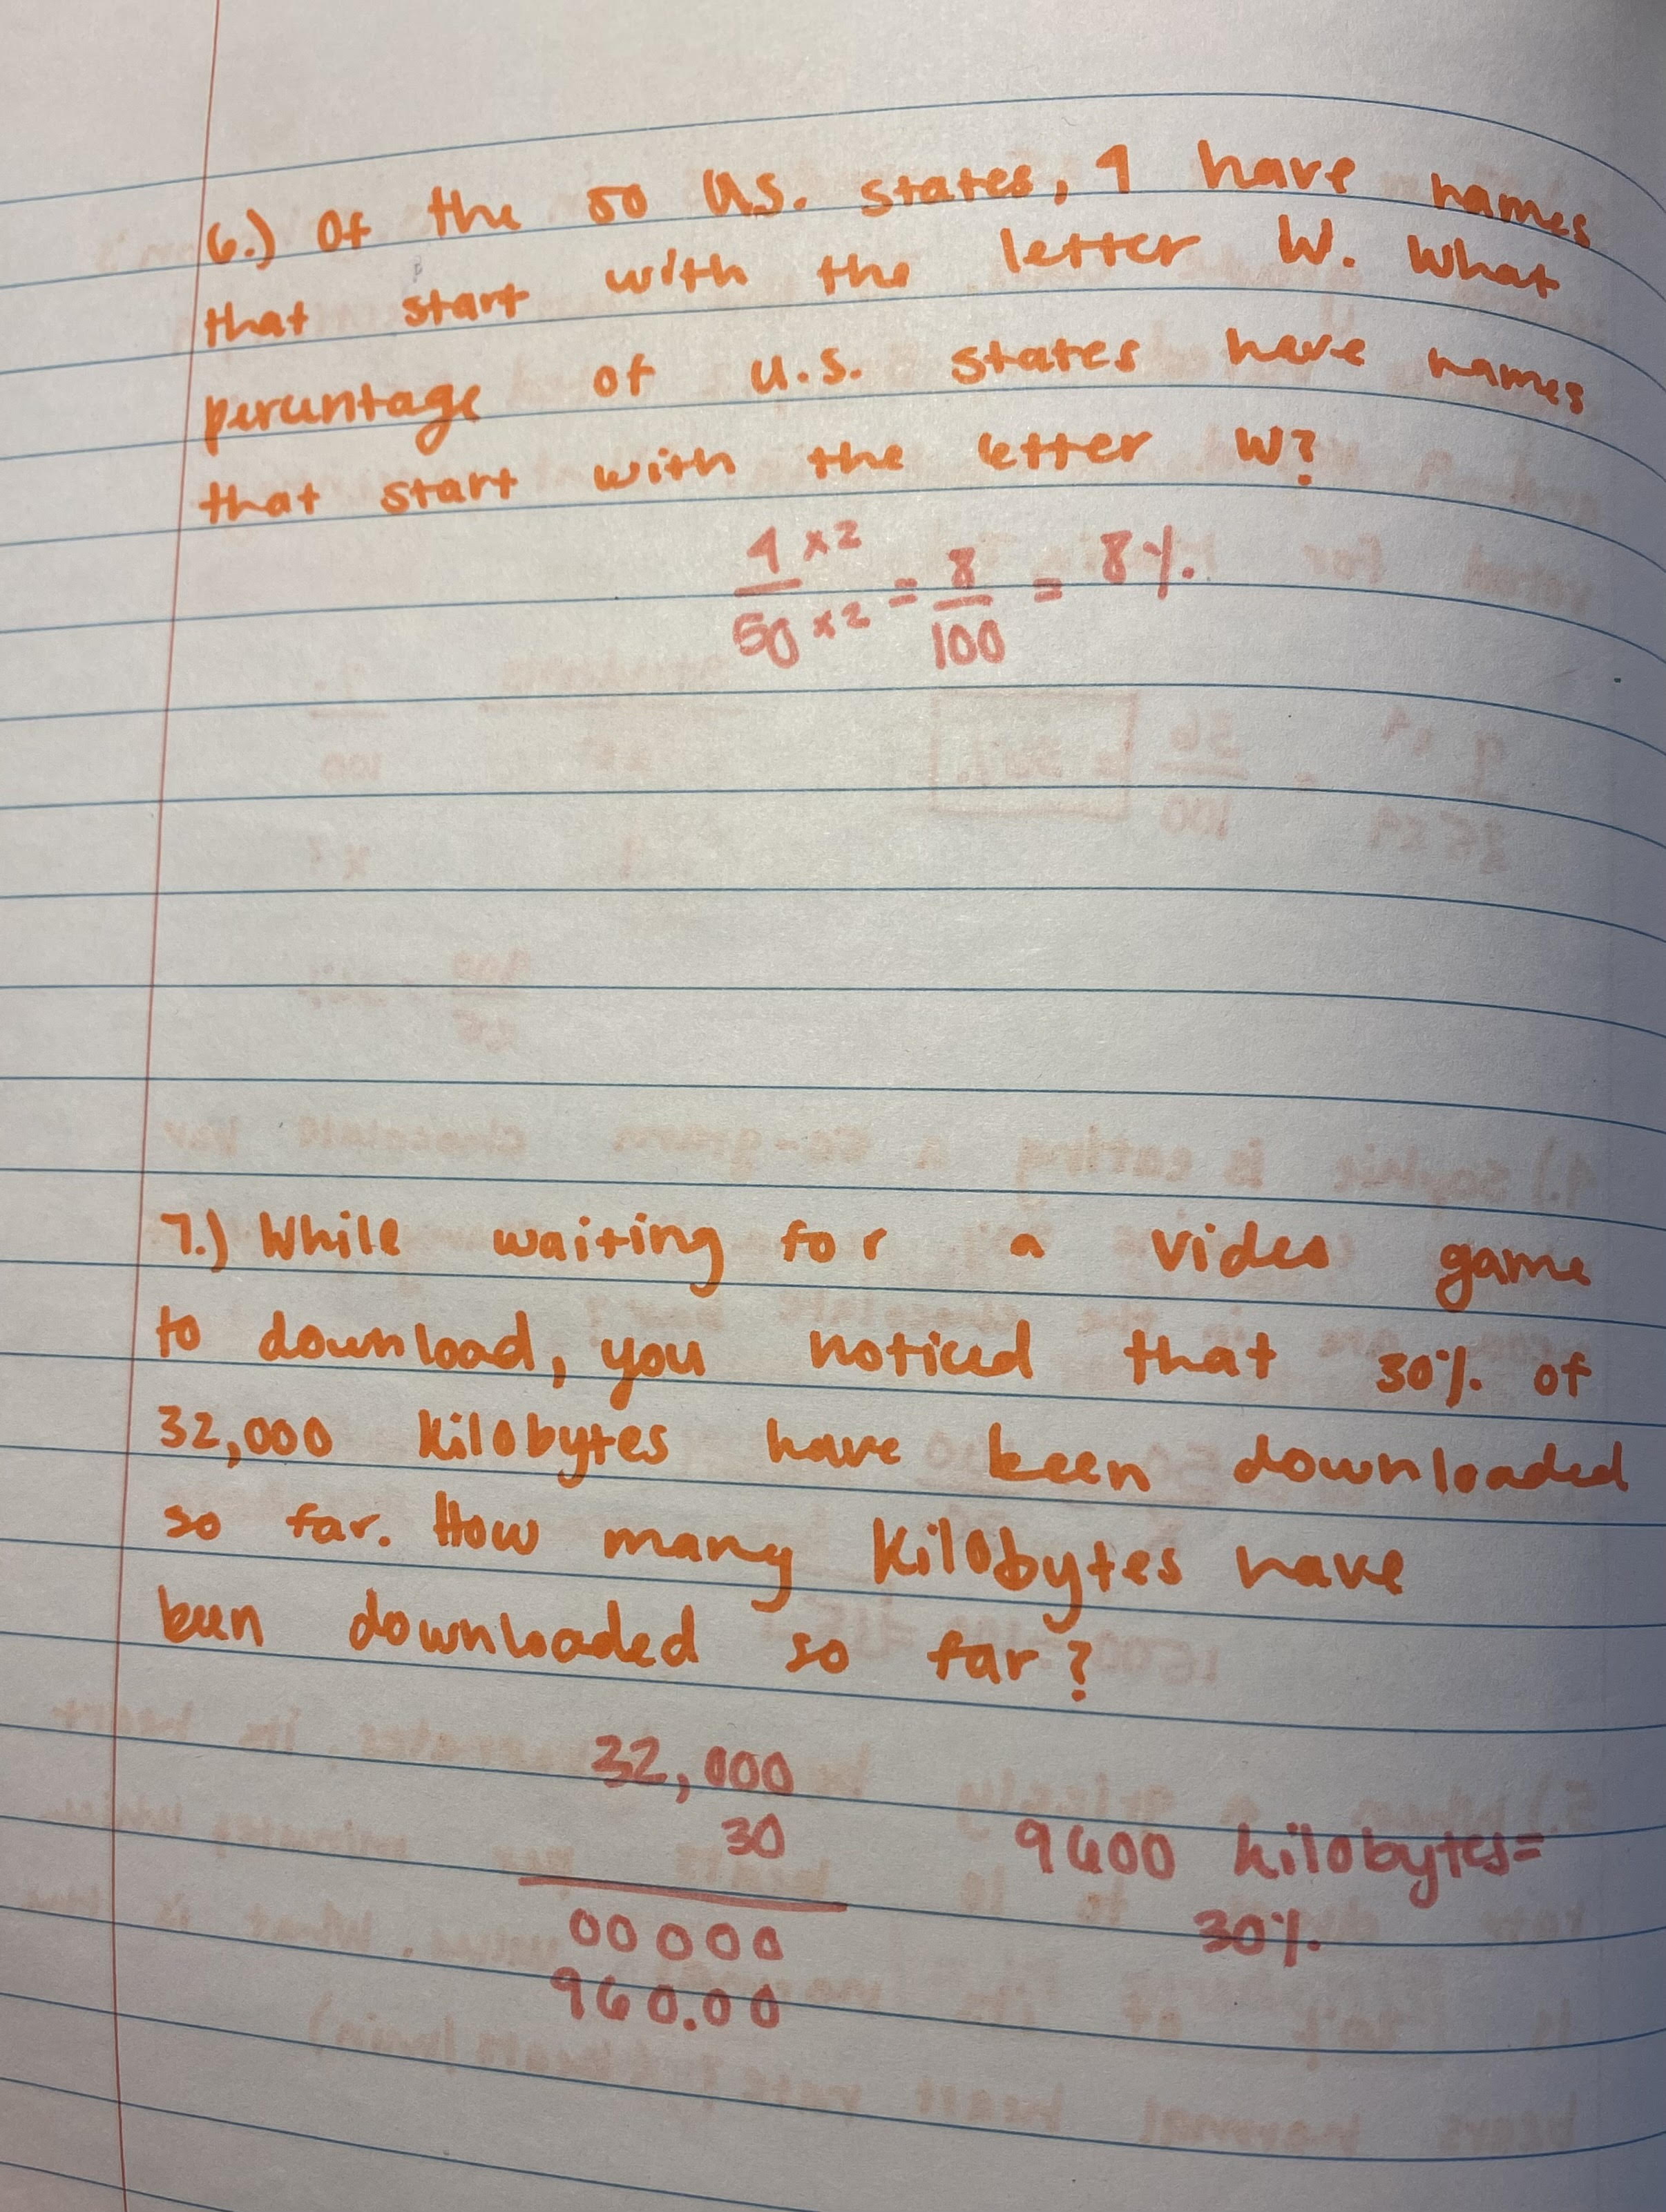 6.) Of the 50 U.S. states, 4 have names
that start with the letter W. What
percentage of U.S. states have names
that start with the letter W?
4 x2 = 8 = 8%
50 x2 100
7.) While waiting for a video game
to download, you noticed that 30% of
32,000 kilobytes have been downloaded
so far. How many kilobytes have
been downloaded so far?
32,000
30
9600 kilobytes=
30%
00000
960.00